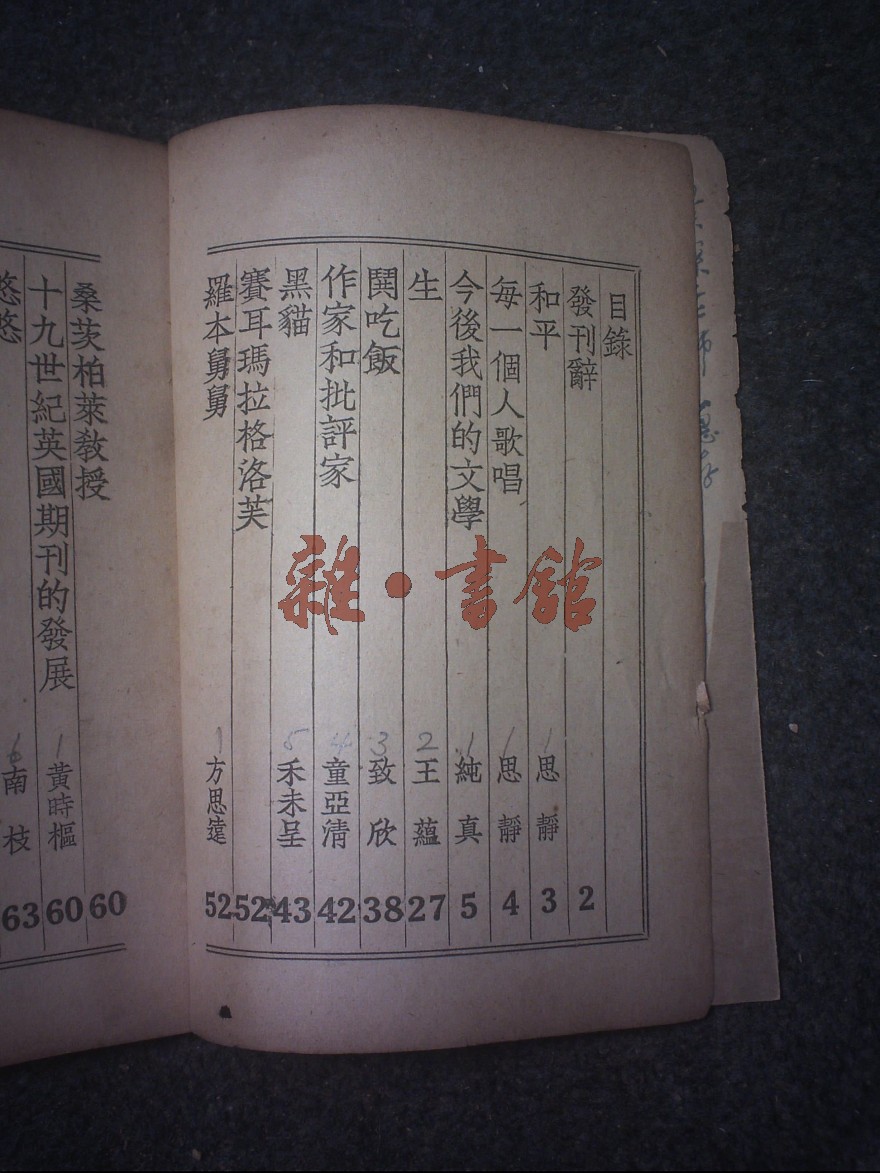 目錄
發刊辭 2
和平 1 思靜 3
每一個人歌唱 1 思靜 4
今後我們的文學 1 純真 5
生 2 王蘊 27
鬨吃飯 3 致欣 38
作家和批評家 4 童亞清 42
黑貓 5 禾未呈 43
賽耳瑪拉格洛芙 52
羅本舅舅 1 方思遠 52
桑茨柏萊教授 60
十九世紀英國期刊的發展 1 黃時樞 60
悠悠 6 南枝 63
雜·書館